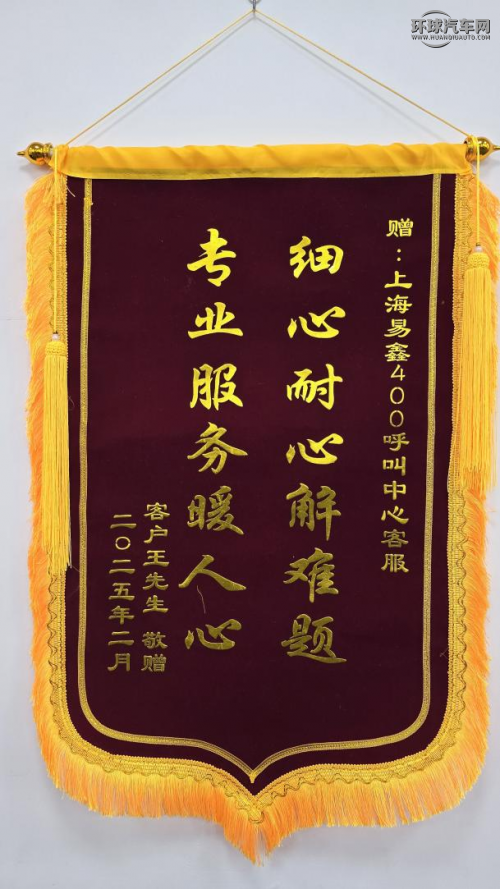 环球汽车网
WWW.HUANQIUAUTO.COM
赠：上海易鑫400呼叫中心客服
细心耐心解难题
专业服务暖人心
客户王先生 敬赠
二〇二五年二月